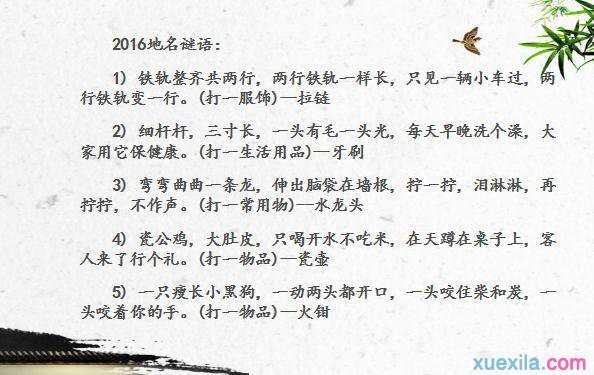 2016地名谜语：
1) 铁轨整齐共两行，两行铁轨一样长，只见一辆小车过，两
行铁轨变一行。(打一服饰)—拉链
2) 细杆杆，三寸长，一头有毛一头光，每天早晚洗个澡，大
家用它保健康。(打一生活用品)—牙刷
3) 弯弯曲曲一条龙，伸出脑袋在墙根，拧一拧，泪淋淋，再
拧拧，不作声。(打一常用物)—水龙头
4) 瓷公鸡，大肚皮，只喝开水不吃米，在天蹲在桌子上，客
人来了行个礼。(打一物品)—瓷壶
5) 一只瘦长小黑狗，一动两头都开口，一头咬住柴和炭，一
头咬着你的手。(打一物品)—火钳
xuexila.com